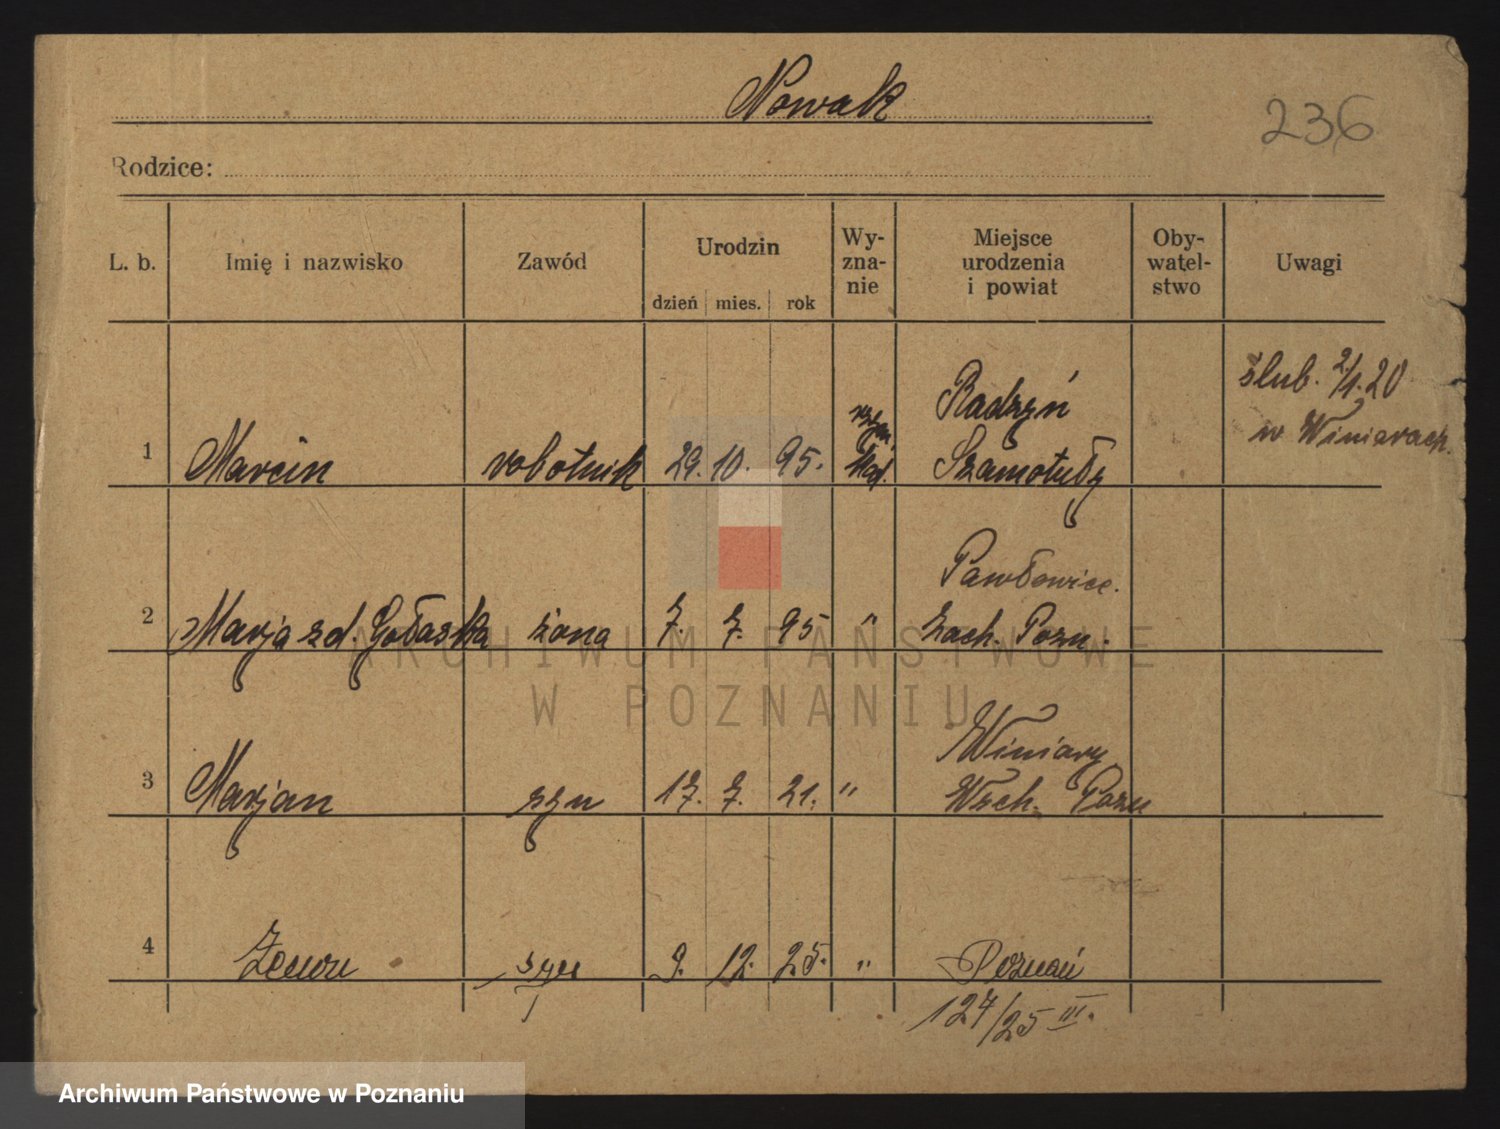 Nowak
236
Rodzice:
L. b. Imię i nazwisko Zawód Urodzin dzień mies. rok Wy-zna-nie Miejsce urodzenia i powiat Oby-watel-stwo Uwagi
1 Marcin robotnik 29. 10. 95. rzym. kat. Radzyń Szamotuły ślub. 2/1. 20 w Winiarach.
2 Marja zd. Gołaska żona 7. 7. 95 " Pawłowice. Zach. Pozn.
3 Marjan syn 17. 7. 21. " Winiary Wsch. Pozn
4 Zenon syn 9. 12. 25. " Poznań
127/25 III.
ARCHIWUM PAŃSTWOWE
W POZNANIU
Archiwum Państwowe w Poznaniu